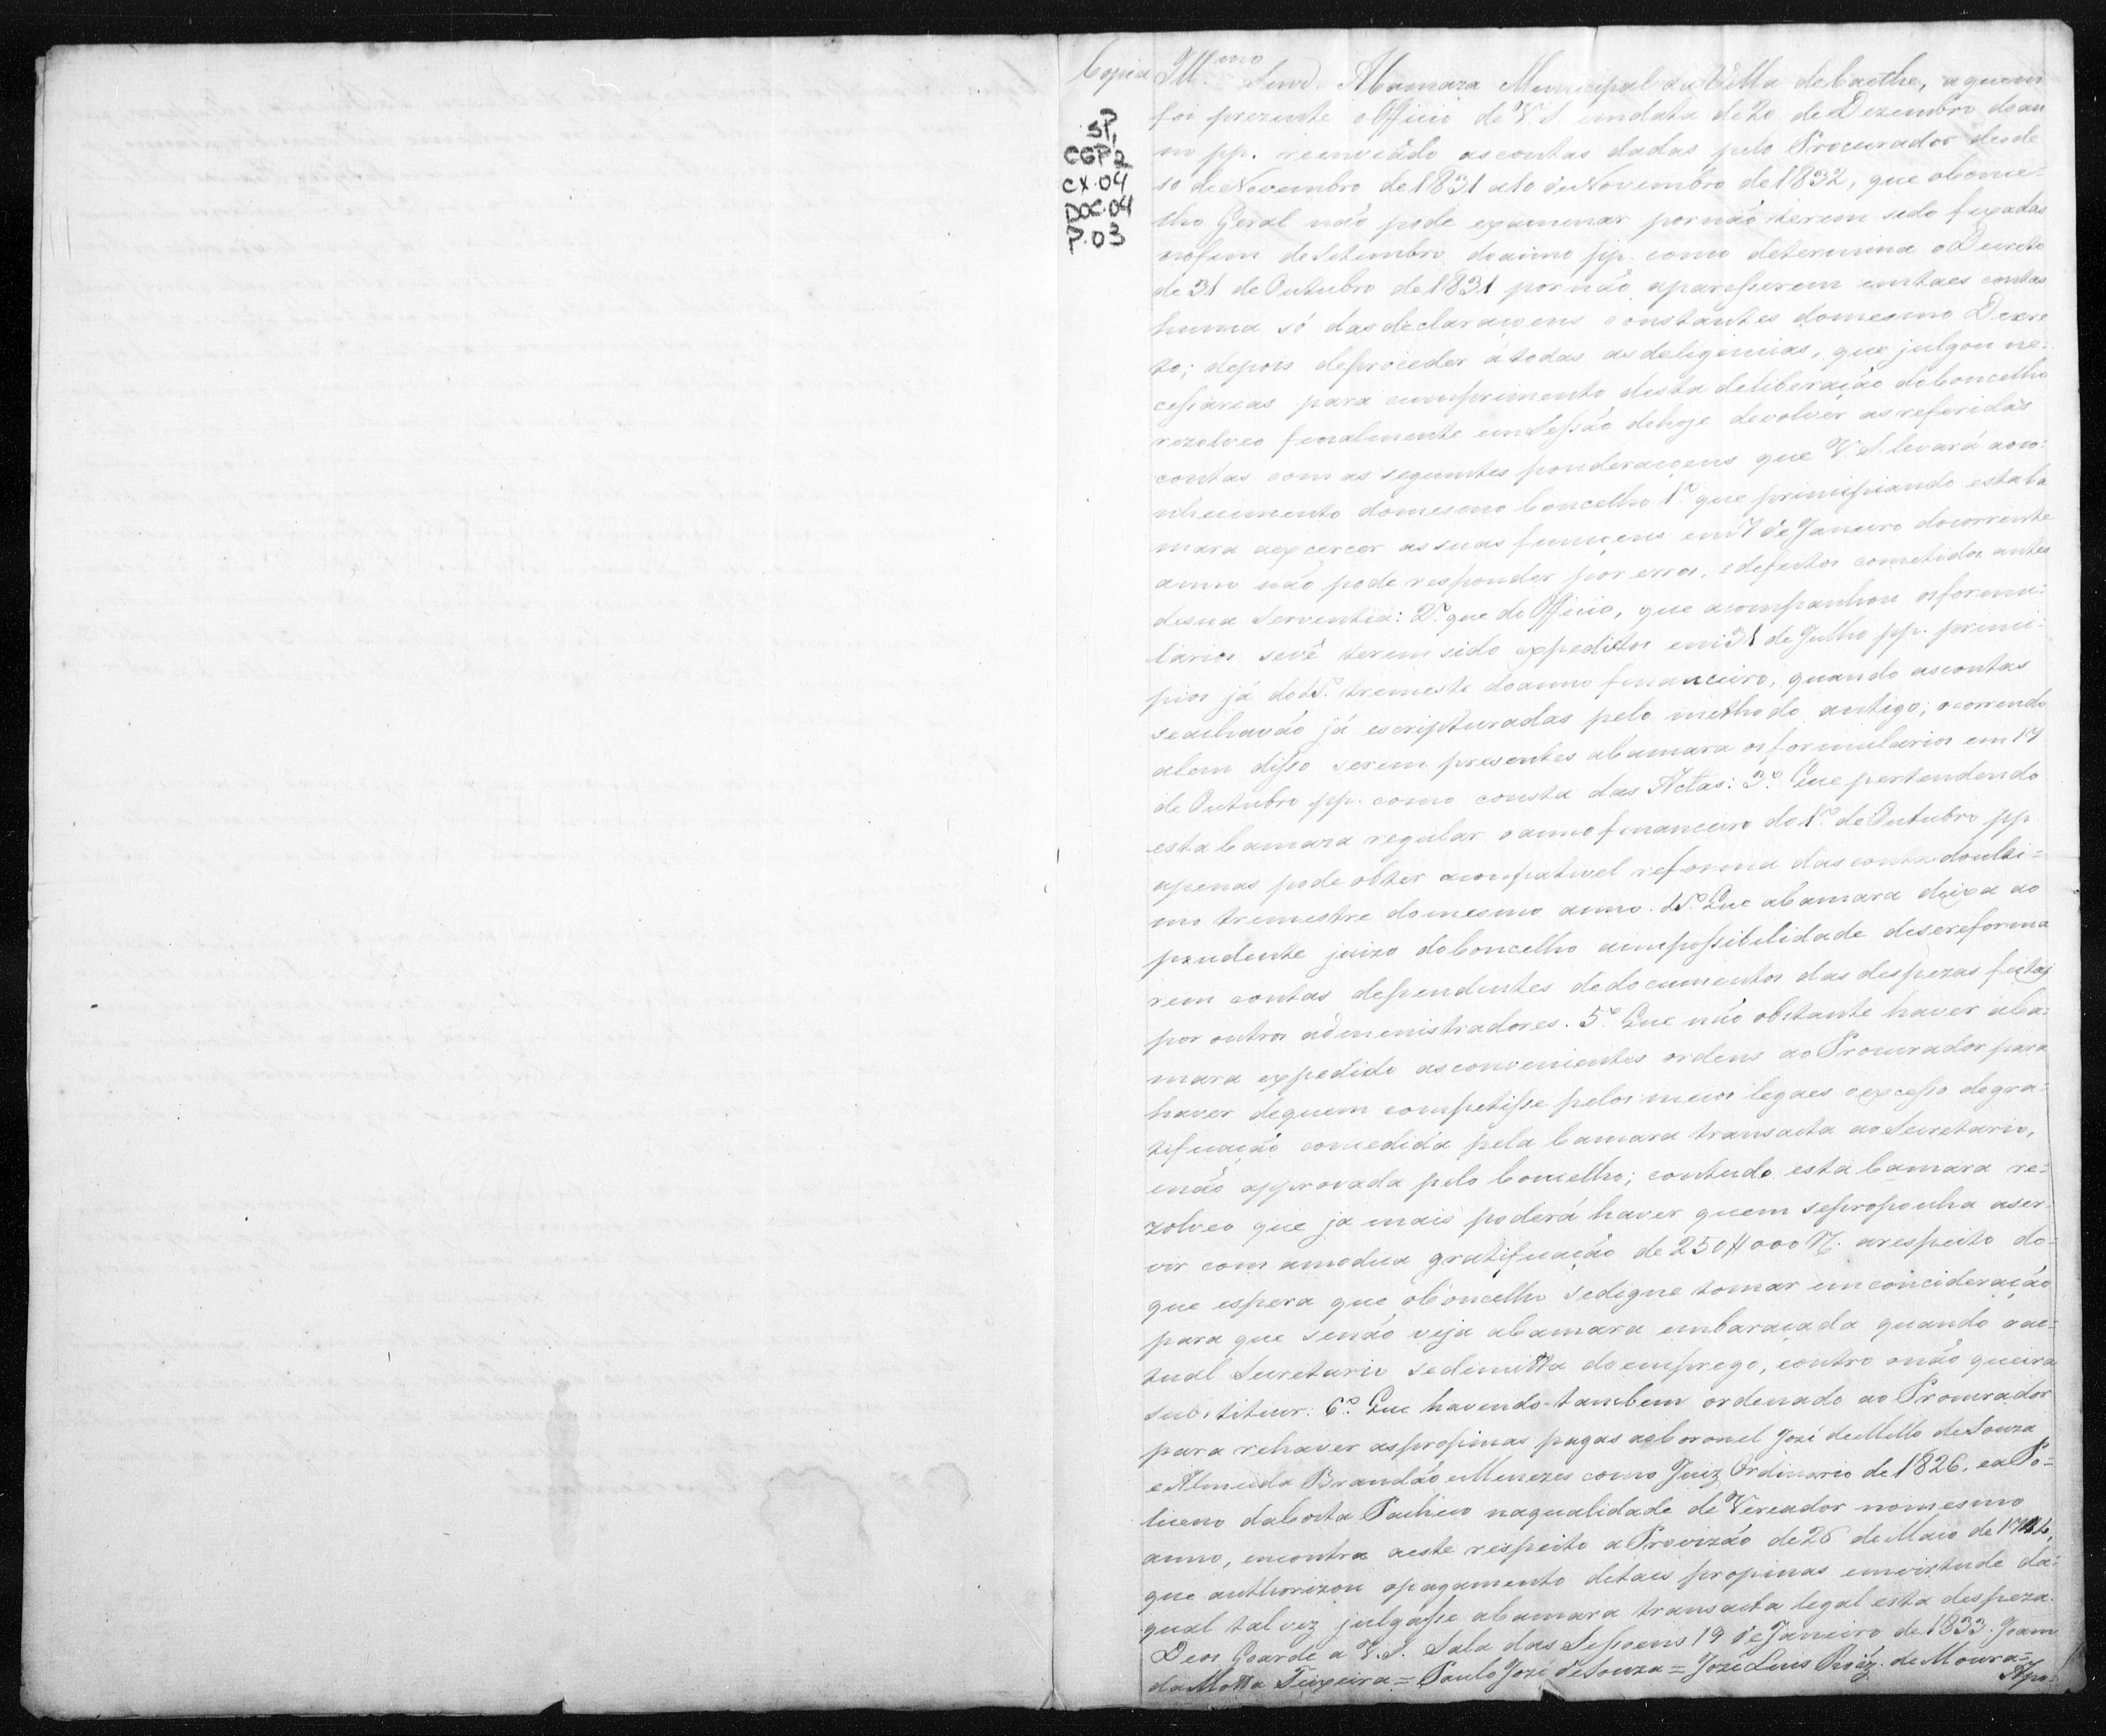 Copia Ill.mo Senr. A Camara Municipal da Villa de Caethe, a quem
SP1
CGP2
CX.04
DOC.04
P.03
foi prezente o Officio de V. S. em data de 20 de Dezembro do an
no pp. reenviádo as contas dadas pelo Procurador desde
10 de Novembro de 1831 a 10 de Novembro de 1832, que o Conce=
lho Geral naõ pode examinar por naõ terem sido fexadas
no fim de Setembro do anno pp. como determina o Decreto
de 31 de Outubro de 1831 por naõ aparesserem em taes contas
huma só das declaraçoens constantes do mesmo Decre
to; depois de proceder á todas as deligencias, que julgou ne=
cessarias para cumprimento desta deliberação do Concelho
rezolveo finalmente em Sessaõ de hoje devolver as referidas
contas com as seguintes ponderaçoens que V. S. levará ao co=
nhecimento do mesmo Concelho 1º que principiando esta Ca
mara a excercer as suas funçoens em 7 de Janeiro do corrente
anno naõ pode responder por erros, e defeitos cometidos antes
de sua Serventia: 2º que do Officio, que acompanhou os formu=
larios se vê terem sido expeditos em 31 de Julho pp. princi=
pios já do 4º tremestre do anno financeiro, quando as contas
se achavaõ já escripturadas pelo methodo antigo; ocorrendo
alem disso serem presentes a Camara os formularios em 17
de Outubro pp. como consta das Actas: 3º Que pertendendo
esta Camara regular o anno financeiro do 1º de Outubro pp
apenas pode obter acompativel reforma das contas do ulti=
mo tremestre do mesmo anno. 4º Que a Camara deixa ao
prudente juizo do Concelho a impossibilidade de se reforma
rem contas dependentes de documentos das despezas feitas
por outros administradores. 5º Que naõ obstante haver a Ca=
mara expedido as convenientes ordens ao Procurador para
haver de quem competisse pelos meios legaes o excesso de gra=
tificaçaõ concedida pela Camara transacta ao Secretario,
e naõ approvada pelo Concelho; contudo esta Camara re=
zolveo que ja mais poderá haver quem se proponha a ser
vir com a modica gratificaçaõ de 250#000 r. a respeito do=
que espera que o Concelho se digne tomar em concideração
para que se naõ veja a Camara embaraçada quando o ac=
tual Secretario se dimitta do emprego, e outro o naõ queira
substituir: 6º Que havendo tambem ordenado ao Procurador
para rehaver as propinas pagas ao Coronel Jozé de Mello de Souza
e Almeida Brandaõ e Menezes como Juiz Ordinario de 1826, e a Po=
liceno da Costa Pacheco na qualidade de Vereador no mesmo
anno, encontra a este respeito a Provizaõ de 26 de Maio de
que authorizou o pagamento de taes propinas em virtude da=
qual talvez julgásse a Camara transacta legal esta despeza.
Deos Goarde a V. S. Sala das Sessoens 19 de Janeiro de 1833. Joam
da Motta Teixeira = Paulo Jozé de Souza = Jozé Luis Roiz. de Moura=
Apo=